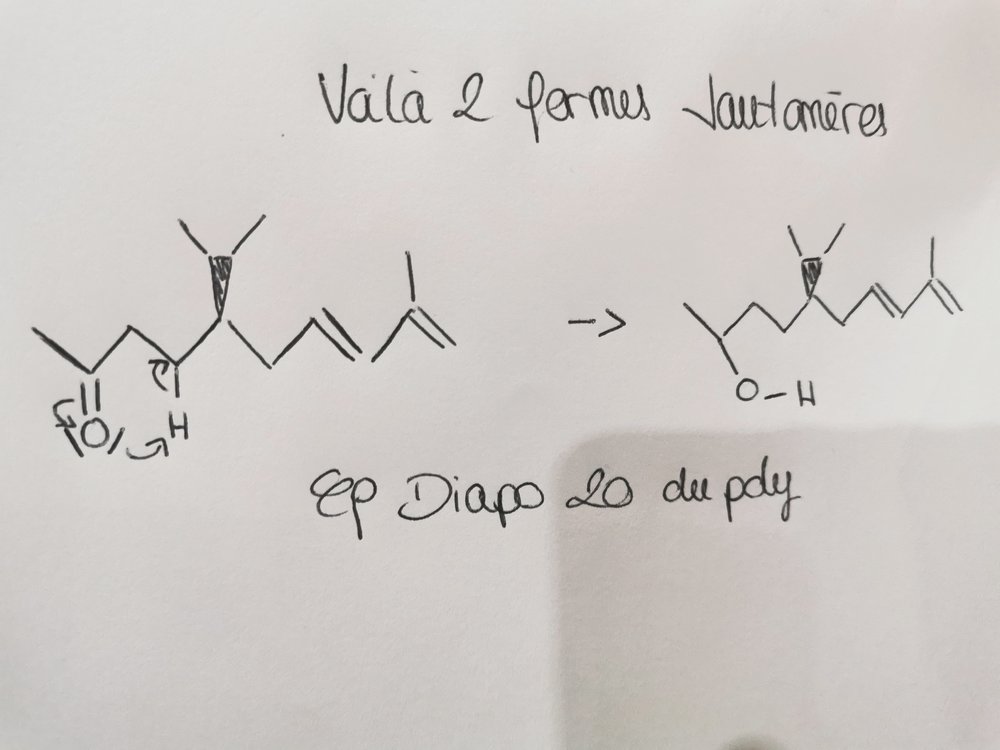 Voilà 2 formes tautomères
H
O
O-H
Ep Diapo 20 du poly